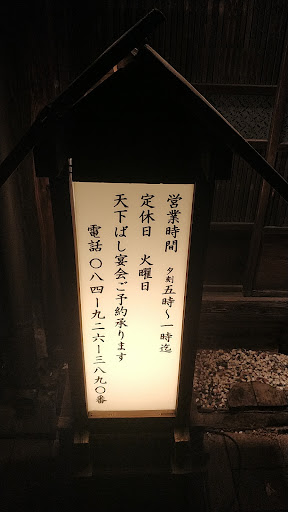 営業時間 夕刻五時~一時迄
定休日 火曜日
天下ばし宴会ご予約承ります
電話〇八四ー九二六ー三八九〇番